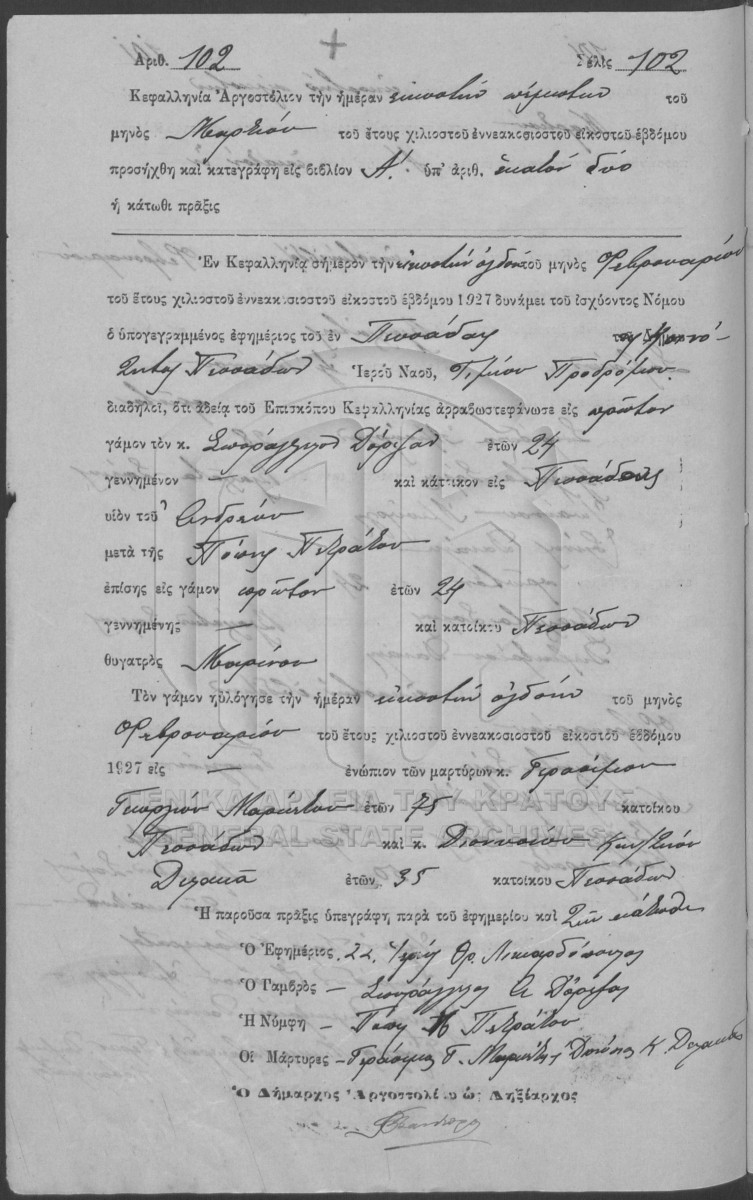 Ἀριθ. 102 Σελὶς 102
Κεφαλληνία Ἀργοστόλιον τὴν ἡμέραν εἰκοστὴν πέμπτην τοῦ
μηνὸς Μαρτίου τοῦ ἔτους χιλιοστοῦ ἐννεακοσιοστοῦ εἰκοστοῦ ἑβδόμου
προσήχθη καὶ κατεγράφη εἰς βιβλίον Α΄. ὑπ' ἀριθ. ἑκατὸν δύο
ἡ κάτωθι πρᾶξις
Ἐν Κεφαλληνίᾳ σήμερον τὴν εἰκοστὴν ὀγδόην τοῦ μηνὸς Φεβρουαρίου
τοῦ ἔτους χιλιοστοῦ ἐννεακοσιοστοῦ εἰκοστοῦ ἑβδόμου 1927 δυνάμει τοῦ ἰσχύοντος Νόμου
ὁ ὑπογεγραμμένος ἐφημέριος τοῦ ἐν Πεσσάδας τῆς Κοινό-
τητος Πεσσάδων Ἱεροῦ Ναοῦ, Τιμίου Προδρόμου
διαδηλοῖ, ὅτι ἀδείᾳ τοῦ Ἐπισκόπου Κεφαλληνίας ἀρραβωστεφάνωσε εἰς πρῶτον
γάμον τὸν κ. Σπυράγγελον Δόριζαν ἐτῶν 24
γεννημένον — καὶ κάτοικον εἰς Πεσσάδας
υἱὸν τοῦ Ἀνδρέου
μετὰ τῆς Πόπης Πετράτου
ἐπίσης εἰς γάμον πρῶτον ἐτῶν 24
γεννημένης — καὶ κατοίκου Πεσσάδων
θυγατρὸς Μαρίνου
Τὸν γάμον ηὐλόγησε τὴν ἡμέραν εἰκοστὴν ὀγδόην τοῦ μηνὸς
Φεβρουαρίου τοῦ ἔτους χιλιοστοῦ ἐννεακοσιοστοῦ εἰκοστοῦ ἑβδόμου
1927 εἰς — ἐνώπιον τῶν μαρτύρων κ. Γερασίμου
Γεωργίου Μαρκέτου ἐτῶν 75 κατοίκου
ΓΕΝΙΚΑ ΑΡΧΕΙΑ ΤΟΥ ΚΡΑΤΟΥΣ
GENERAL STATE ARCHIVES
Πεσσάδων καὶ κ. Διονυσίου
ἐτῶν 35 κατοίκου Πεσσάδων
Ἡ παροῦσα πρᾶξις ὑπεγράφη παρὰ τοῦ ἐφημερίου καὶ τῶν κάτωθι
Ὁ Ἐφημέριος
Ὁ Γαμβρὸς – Σπυράγγελος Α Δόριζας
Ἡ Νύμφη – Πόπη Μ Πετράτου
Οἱ Μάρτυρες – Γεράσιμος Γ.
Ὁ Δήμαρχος Ἀργοστολίου ὡς Ληξίαρχος